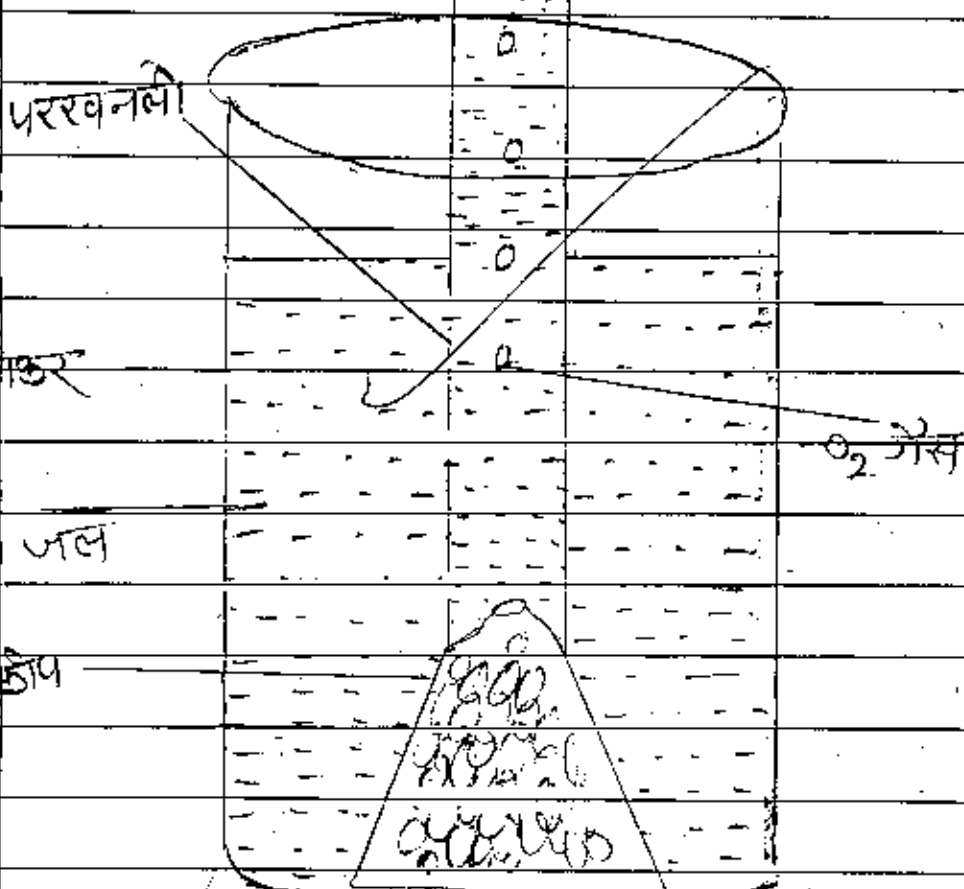 परखनली
O₂ गैस
जल